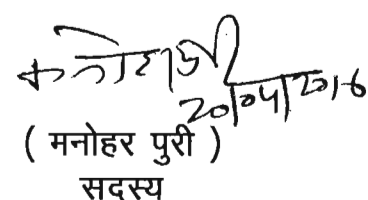 20/04/2016
( मनोहर पुरी )
सदस्य